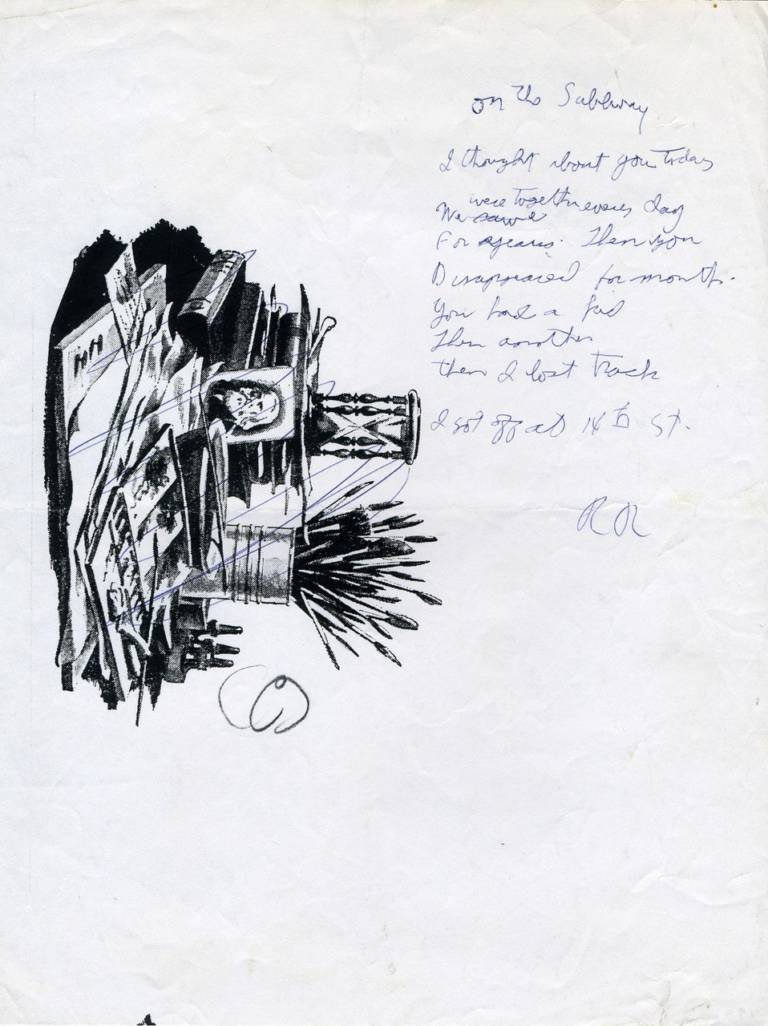 on the Subway
I thought about you Today
We were together every day
For years. Then you
Disappeared for months.
You had a kid
Then another
then I lost track
I got off at 14th St.
RR